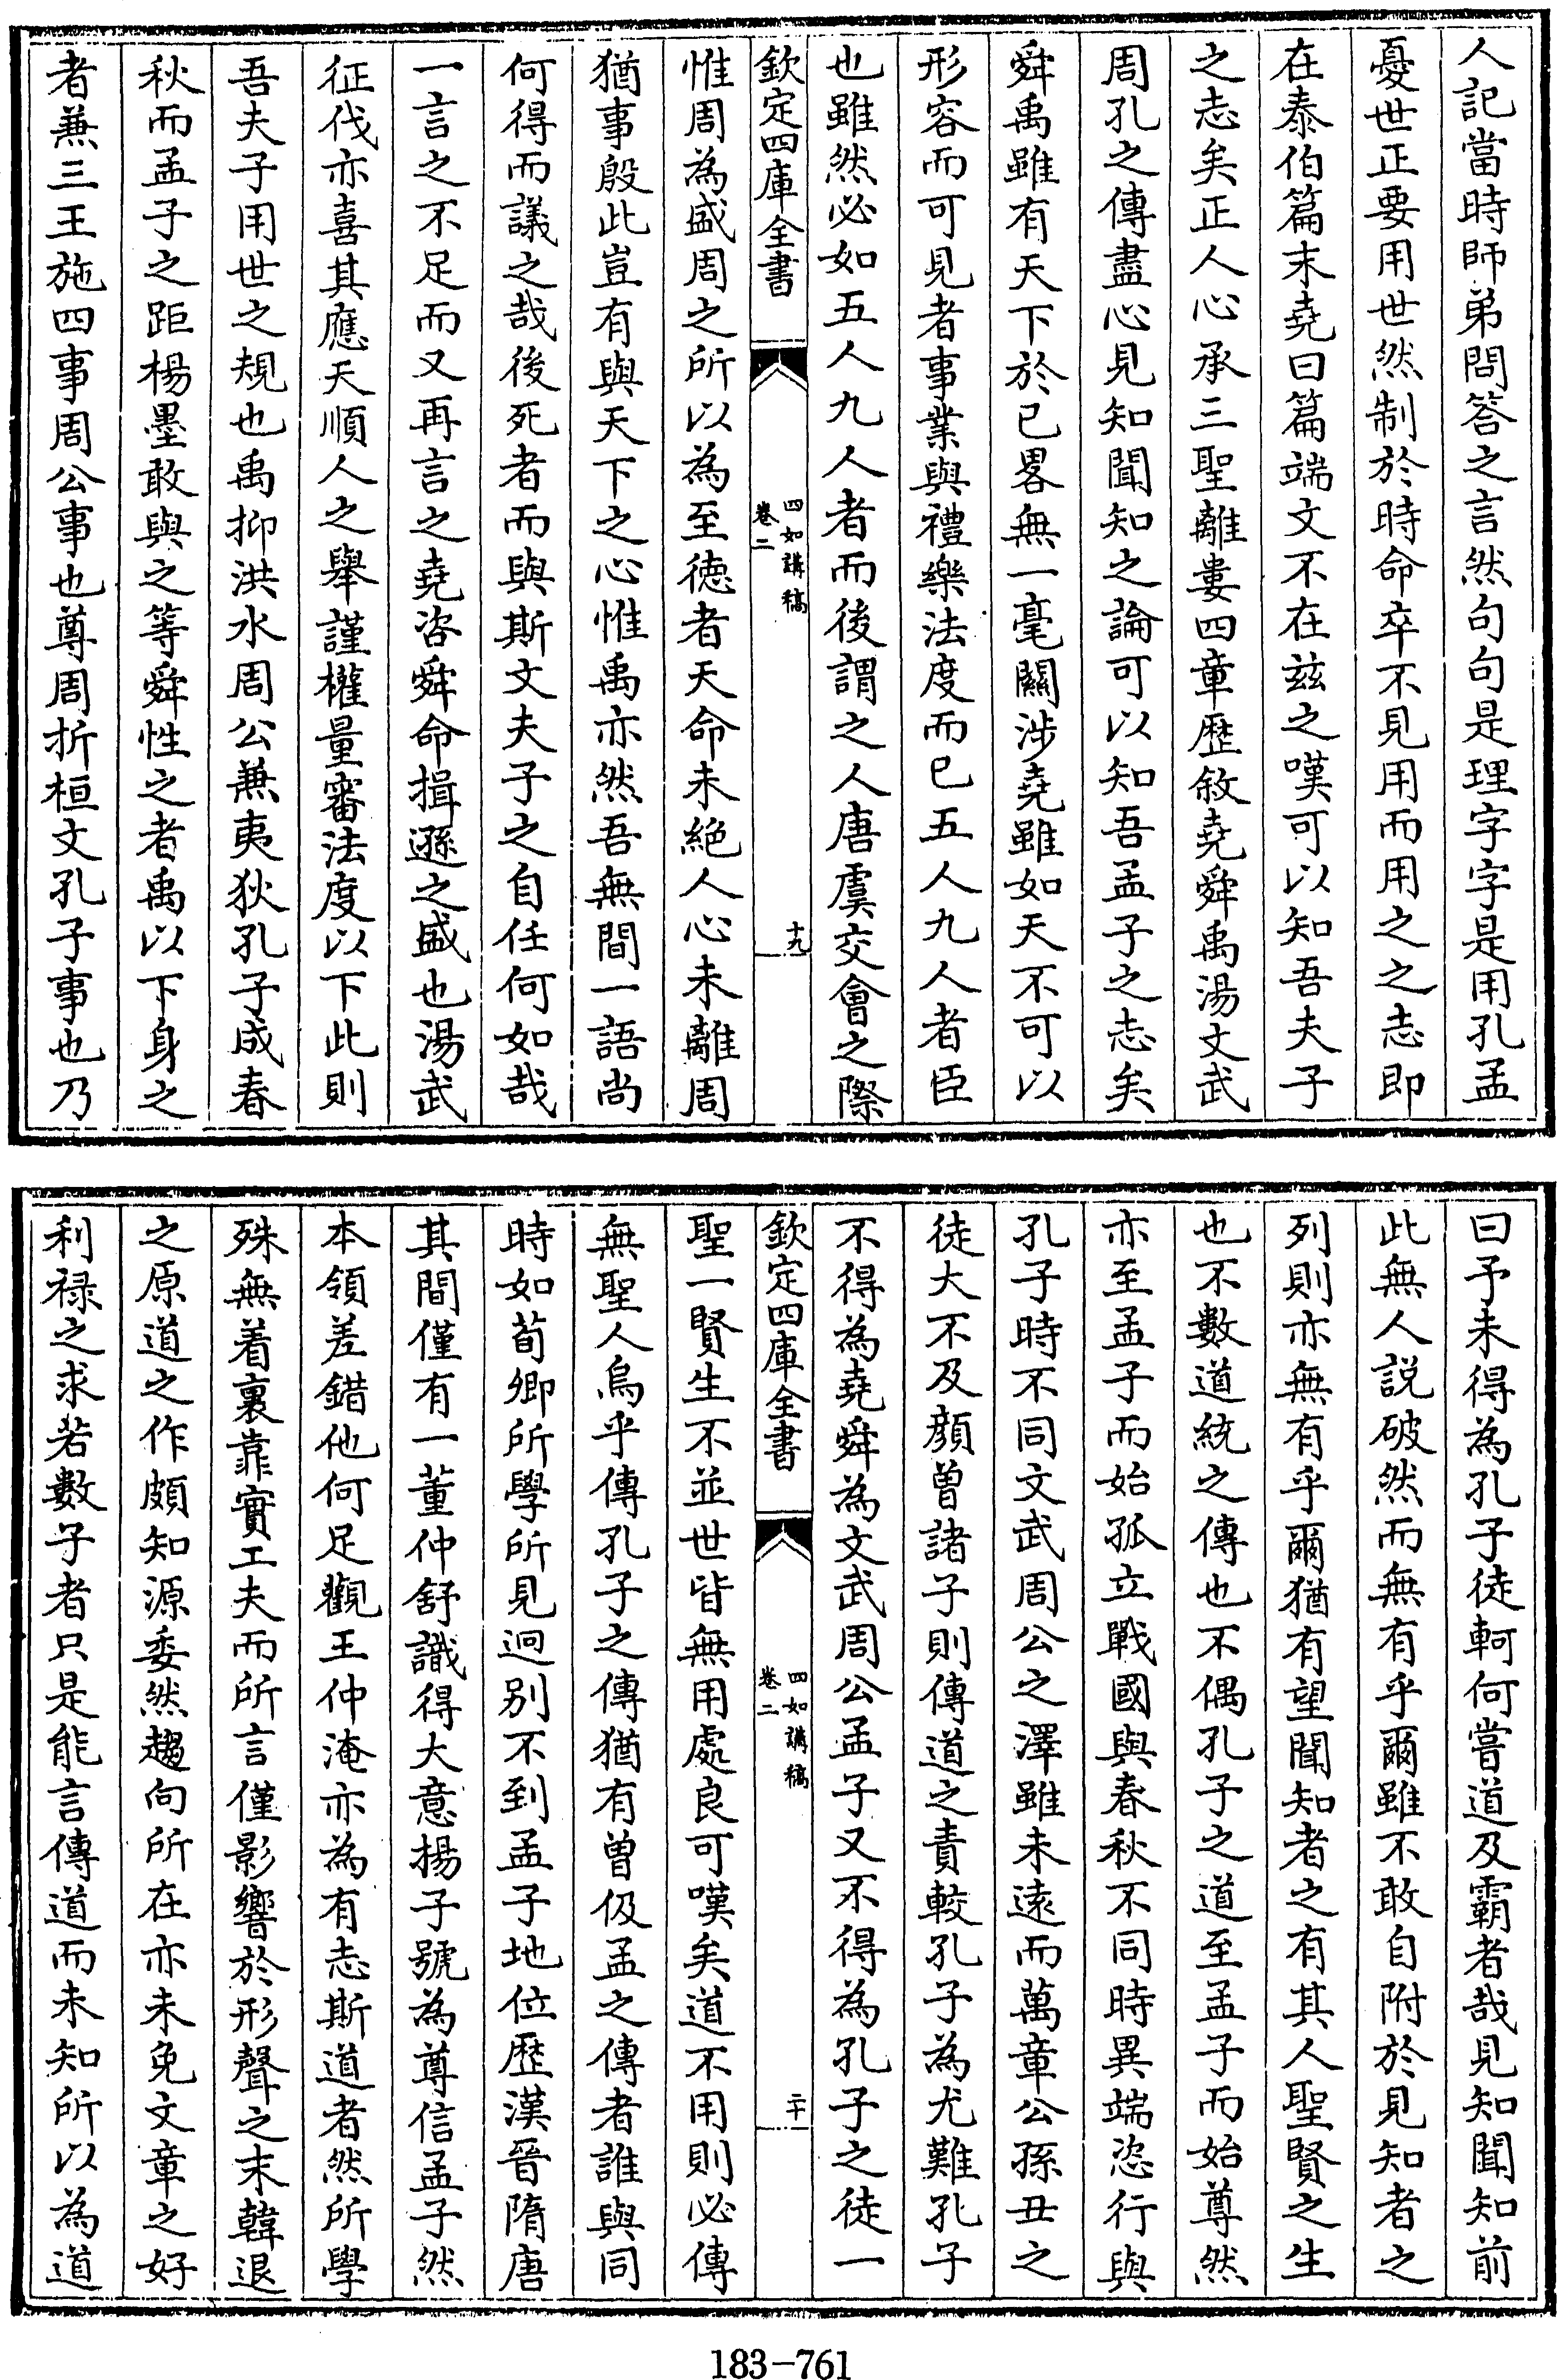 人記當時師弟問答之言然句句是理字字是用孔孟
憂世正要用世然制於時命卒不見用而用之之志即
在泰伯篇末堯曰篇端文不在兹之嘆可以知吾夫子
之志矣正人心承三聖離婁四章歴敘堯舜禹湯文武
周孔之傳盡心見知聞知之論可以知吾孟子之志矣
舜禹雖有天下於已畧無一毫關涉堯雖如天不可以
形容而可見者事業與禮樂法度而已五人九人者臣
也雖然必如五人九人者而後謂之人唐虞交會之際
欽定四庫全書
四如講稿
卷二
十九
惟周為盛周之所以為至徳者天命未絕人心未離周
猶事殷此豈有與天下之心惟禹亦然吾無間一語尚
何得而議之哉後死者而與斯文夫子之自任何如哉
一言之不足而又再言之堯咨舜命揖遜之盛也湯武
征伐亦喜其應天順人之舉謹權量審法度以下此則
吾夫子用世之規也禹抑洪水周公兼夷狄孔子成春
秋而孟子之距楊墨敢與之等舜性之者禹以下身之
者兼三王施四事周公事也尊周折桓文孔子事也乃
曰予未得為孔子徒軻何嘗道及霸者哉見知聞知前
此無人説破然而無有乎爾雖不敢自附於見知者之
列則亦無有乎爾猶有望聞知者之有其人聖賢之生
也不數道統之傳也不偶孔子之道至孟子而始尊然
亦至孟子而始孤立戰國與春秋不同時異端恣行與
孔子時不同文武周公之澤雖未遠而萬章公孫丑之
徒大不及顏曽諸子則傳道之責較孔子為尤難孔子
不得為堯舜為文武周公孟子又不得為孔子之徒一
欽定四庫全書
四如講稿
卷二
二十
聖一賢生不並世皆無用處良可嘆矣道不用則必傳
無聖人烏乎傳孔子之傳猶有曽伋孟之傳者誰與同
時如荀卿所學所見迥别不到孟子地位歴漢晉隋唐
其間僅有一董仲舒識得大意揚子號為尊信孟子然
本領差錯他何足觀王仲淹亦為有志斯道者然所學
殊無着裏靠實工夫而所言僅影響於形聲之末韓退
之原道之作頗知源委然趨向所在亦未免文章之好
利禄之求若數子者只是能言傳道而未知所以為道
183-761